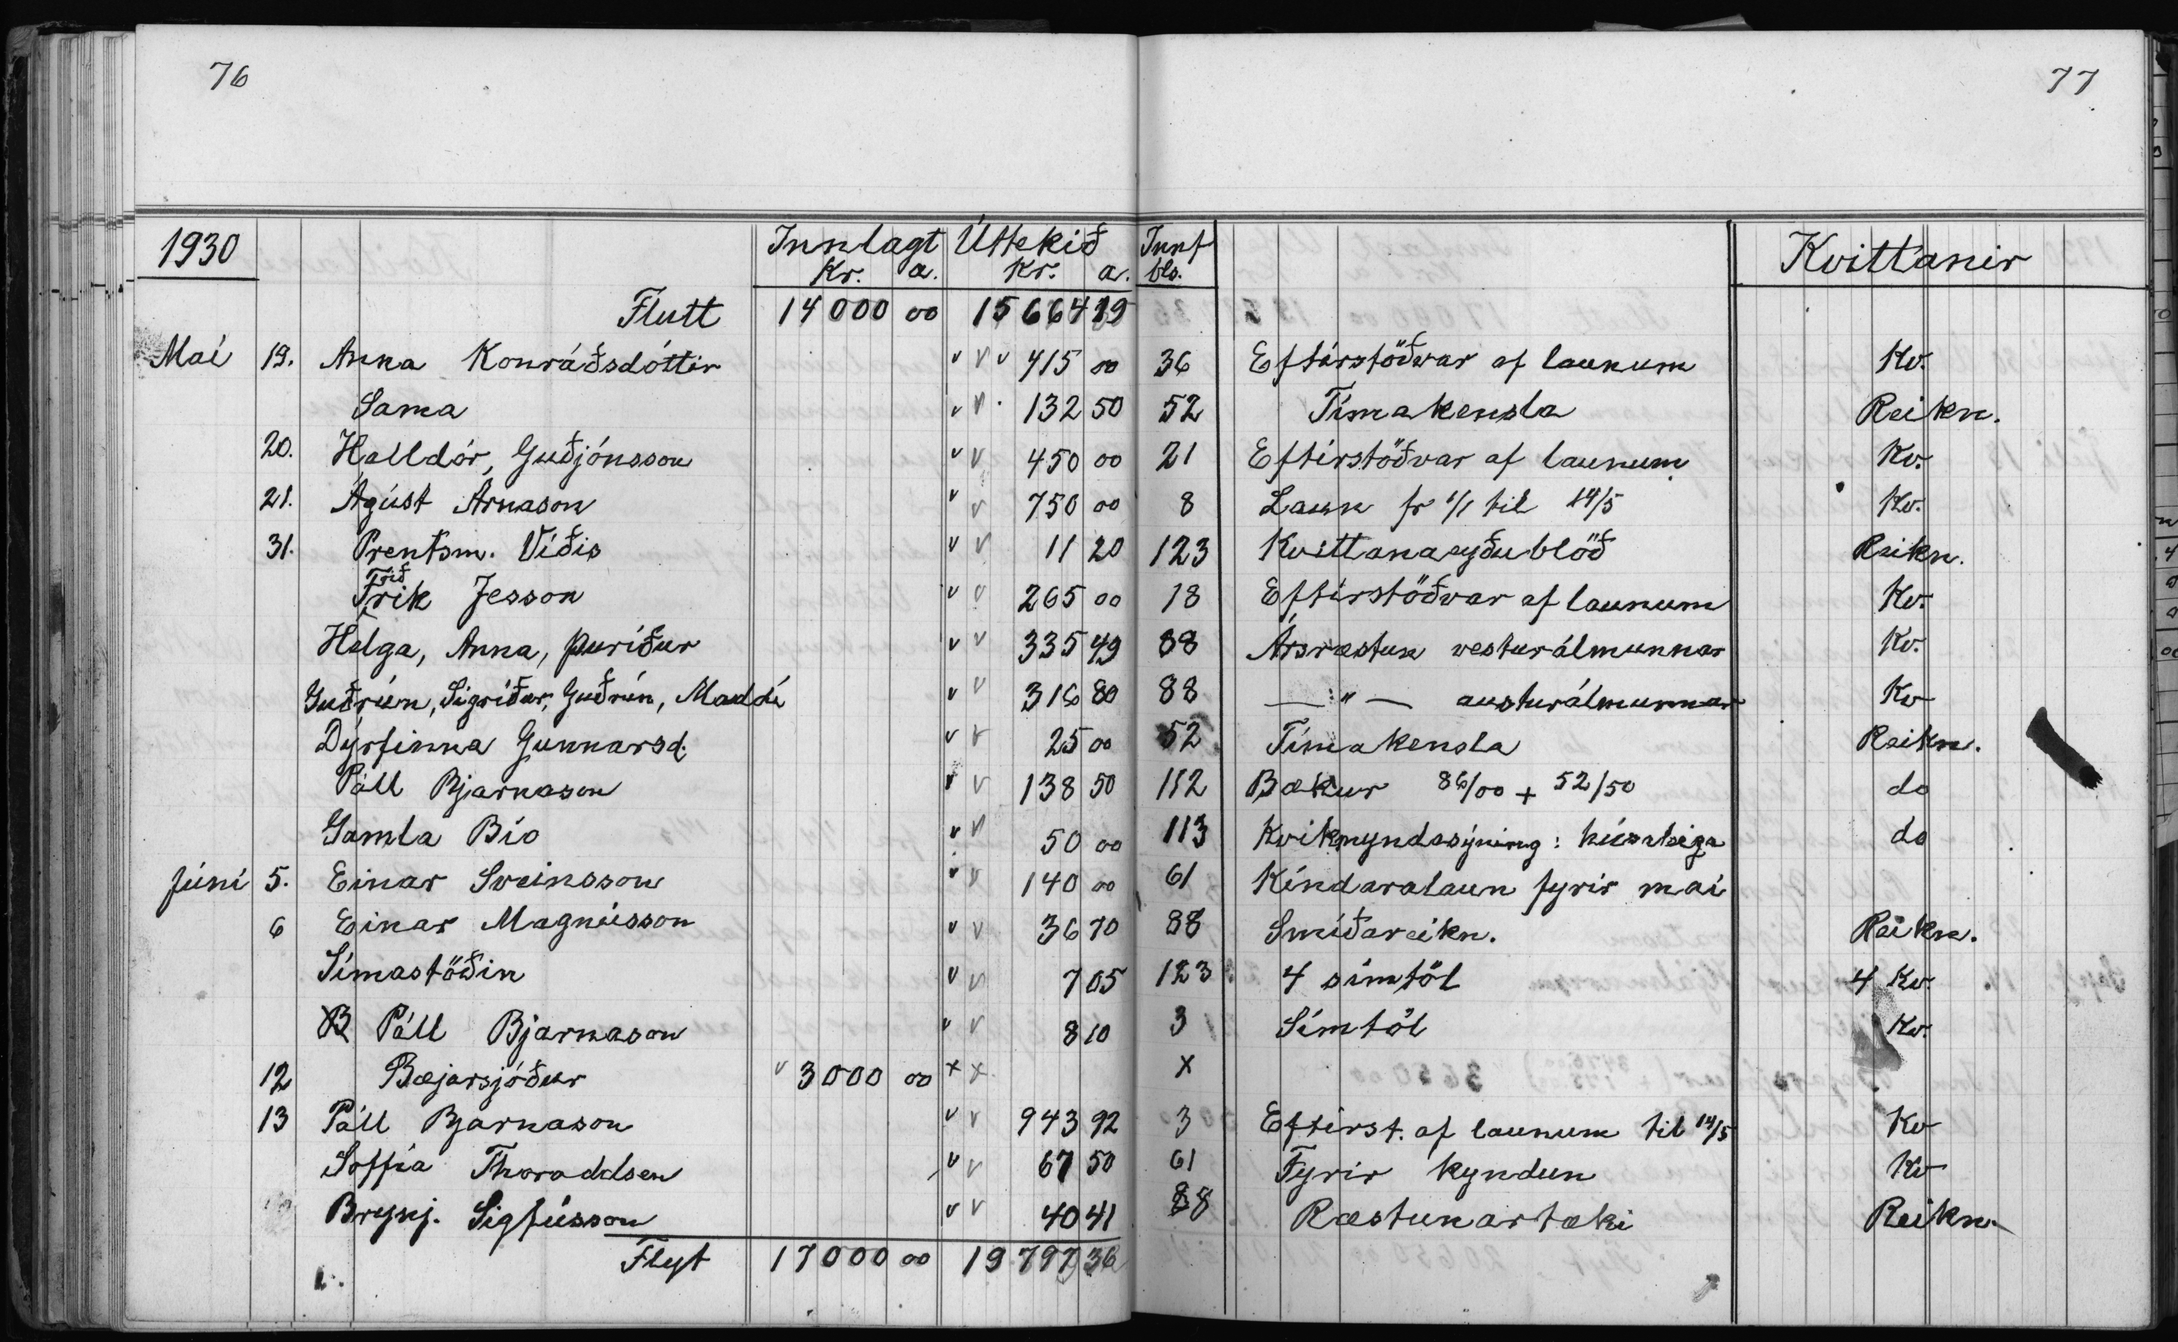 76
77
1930 Innlagt Úttekið Innf Kvittanir
Kr. a. Kr. a. bls.
Flutt 14000 00 15664 19
Maí 19. Anna Konráðsdóttir 415 00 36 Eftirstöðvar af launum Kv.
Sama 132 50 52 Tímakensla Reikn.
20. Halldór Guðjónsson 450 00 21 Eftirstöðvar af launum Kv.
21. Ágúst Árnason 750 00 8 Laun fr 1/1 til 14/5 Kv.
31. Prentsm. Víðis 11 20 123 Kvittanaeyðublöð Reikn.
Frið
Frik Jesson 265 00 18 Eftirstöðvar af launum Kv.
Helga, Anna, Þuríður 335 49 88 Ársræstun vesturálmunnar Kv.
Guðrún, Sigríður, Guðrún, Maddí 316 80 88 — " — austurálmunnar Kv
Dýrfinna Gunnarsd. 25 00 52 Tímakensla Reikn.
Páll Bjarnason 138 50 112 Bækur 86/00 + 52/50 do
Gamla Bíó 50 00 113 Kvikmyndasýning: húsaleiga do
Júní 5. Einar Sveinsson 140 00 61 Kindaralaun fyrir maí
6 Einar Magnússon 36 70 88 Smíðareikn. Reikn.
Símastöðin 7 05 123 4 símtöl 4 Kv.
B Páll Bjarnason 8 10 3 Símtöl Kv.
12 Bæjarsjóður 3000 00 x x x
13 Páll Bjarnason 943 92 3 Eftirst. af launum til 14/5 Kv
Soffía Thoroddsen 67 50 61 Fyrir kyndun Kv
Brynj. Sigfússon 40 41 88 Ræstunartæki Reikn.
Flyt 17000 00 19797 36